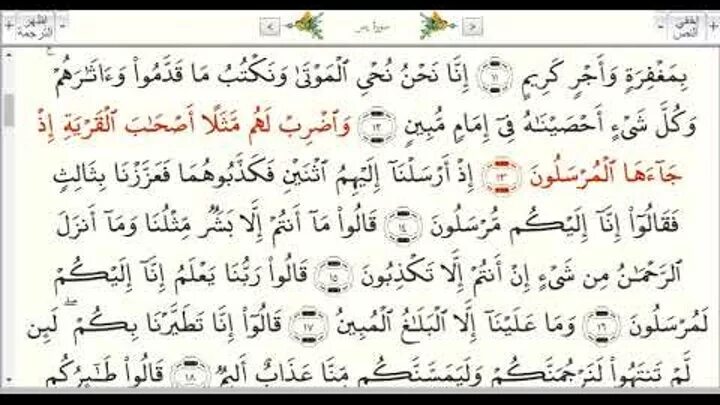 إظهر الترجمة
+
-
>
سورة يس
<
-
+
إخفي النص
بِمَغْفِرَةٍ وَأَجْرٍ كَرِيمٍ ١١ إِنَّا نَحْنُ نُحْىِ ٱلْمَوْتَىٰ وَنَكْتُبُ مَا قَدَّمُوا۟ وَءَاثَٰرَهُمْ
وَكُلَّ شَىْءٍ أَحْصَيْنَٰهُ فِىٓ إِمَامٍ مُّبِينٍ ١٢ وَٱضْرِبْ لَهُم مَّثَلًا أَصْحَٰبَ ٱلْقَرْيَةِ إِذْ
جَآءَهَا ٱلْمُرْسَلُونَ ١٣ إِذْ أَرْسَلْنَآ إِلَيْهِمُ ٱثْنَيْنِ فَكَذَّبُوهُمَا فَعَزَّزْنَا بِثَالِثٍ
فَقَالُوٓا۟ إِنَّآ إِلَيْكُم مُّرْسَلُونَ ١٤ قَالُوا۟ مَآ أَنتُمْ إِلَّا بَشَرٌ مِّثْلُنَا وَمَآ أَنزَلَ
ٱلرَّحْمَٰنُ مِن شَىْءٍ إِنْ أَنتُمْ إِلَّا تَكْذِبُونَ ١٥ قَالُوا۟ رَبُّنَا يَعْلَمُ إِنَّآ إِلَيْكُمْ
لَمُرْسَلُونَ ١٦ وَمَا عَلَيْنَآ إِلَّا ٱلْبَلَٰغُ ٱلْمُبِينُ ١٧ قَالُوٓا۟ إِنَّا تَطَيَّرْنَا بِكُمْ ۖ لَئِن
لَّمْ تَنتَهُوا۟ لَنَرْجُمَنَّكُمْ وَلَيَمَسَّنَّكُم مِّنَّا عَذَابٌ أَلِيمٌ ١٨ قَالُوا۟ طَٰٓئِرُكُم